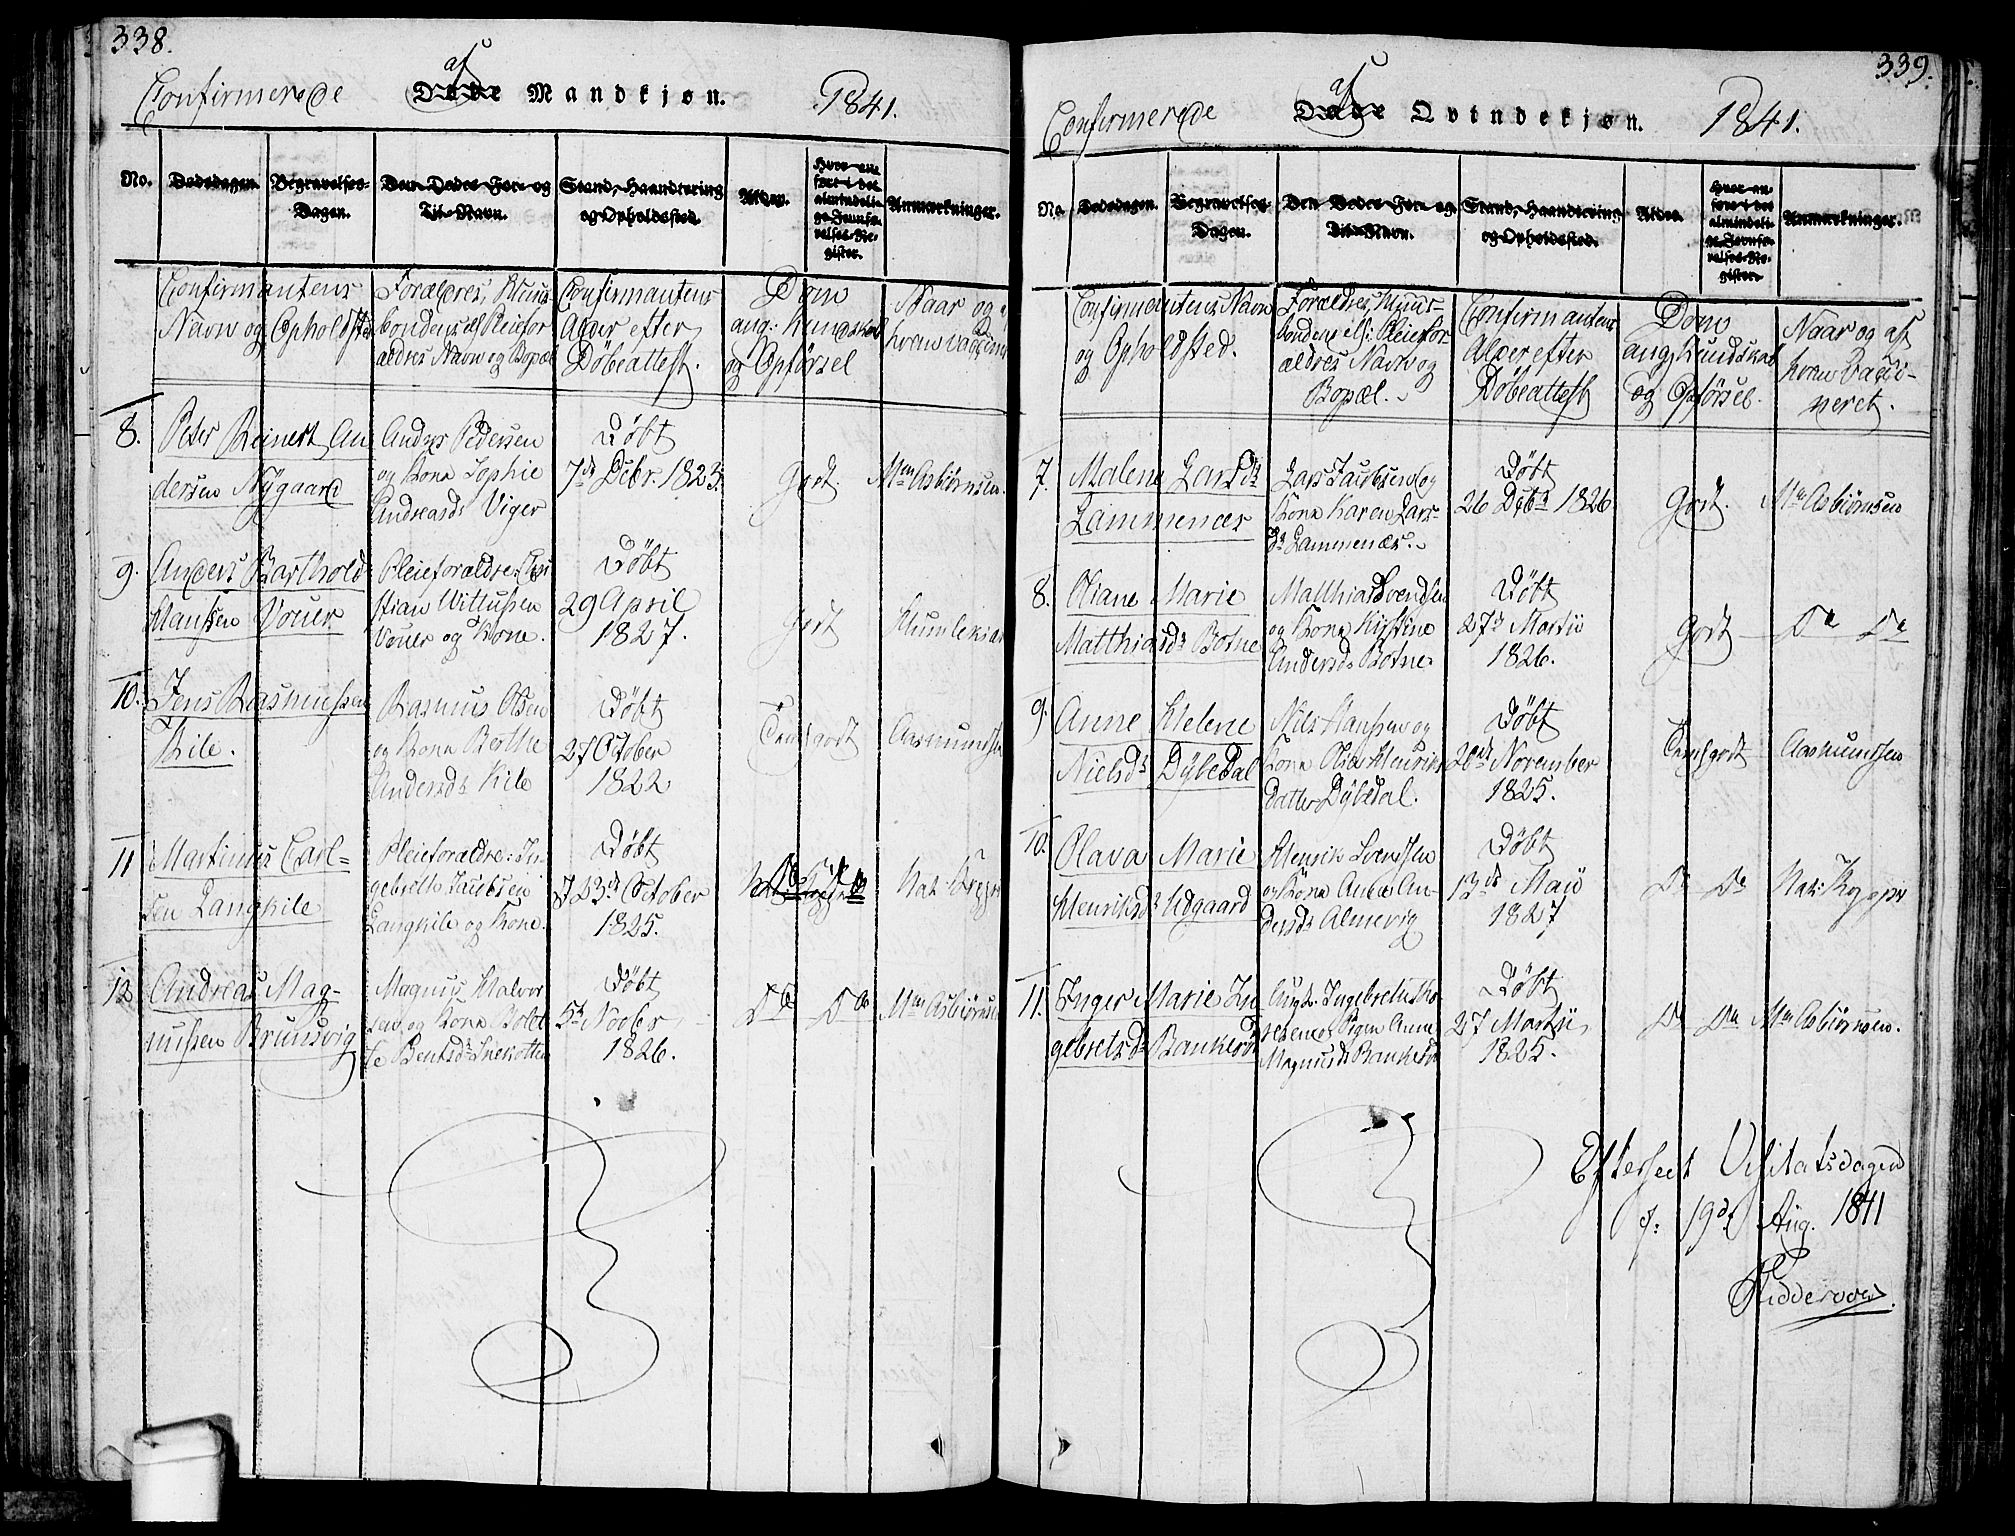 338.
Confirmerede af Døde Mandkjøn. 1841.
No. Dødsdagen. Begravelses-Dagen. Den Dødes For- og Til-Navn. Stand, Haandtering og Opholdssted. Alder. Hvor anført i det almindelige Jevnførelses-Register. Anmærkninger.
Confirmantens Navn og Opholdsted
Forældres, Huusbondens el Pleieforældres Navn og Bopæl
Confirmantens Alder efter Døbeattest.
Dom ang: Kundskab og Opførsel
Naar og af hvem vaccineret
8. Peter Reinert An
dersen Nÿgaard
Anders Pedersen
og Kone Sophie
Andreasdr Viger
Døbt
7de Dcbr. 1823.
Godt.
Mm Asbiørnsen.
9. Anders Barthold
Hanssen Vouer
Pleieforældre: Chri
stian Wittussen
Vouer og Kone.
Døbt
29 April
1827.
Godt
Humlekiær
10. Jens Rasmussen
Kile.
Rasmus Olsen
og Kone Berthe
Andersdr Kile
Døbt
27 October
1822
Temlgodt
Aasmundsen
11 Martinus Carl-
sen Langkile
Pleieforældre: In-
gebrett Jacobsen
Langkile og Kone.
Døbt
d 23de October
1825.
Do Do
Nat: Kopper
12 Andreas Mag-
nussen Brunsvig
Magnus Halvor
sen og Kone Bolet
te Bentsdr Snekotten
Døbt
5te Novbr
1826.
Do Do
Mm Asbiørnsen
339.
Confirmerede af Døde Qvindekjøn. 1841.
No. Dødsdagen. Begravelses-Dagen. Den Dødes For- og Til-Navn. Stand, Haandtering og Opholdssted. Alder. Hvor anført i det almindelige Jevnførelses-Register. Anmærkninger.
Confirmantens Navn og Opholdsted.
Forældres, Huusbondens els: Pleieforældres Navn og Bopæl.
Confirmantens Alder efter Døbeattest
Dom ang. Kundskab og Opførsel.
Naar og af hvem Vaccineret.
7. Malene Larsdr
Lammenæs
Lars Jacobsen og
Kone Karen Lars-
dr Lammenæs.
Døbt
26 Dcbr 1826
Godt.
Mm Asbiørnsen
8. Oliane Marie
Matthiasdr Botne
Matthias Svendsen
og Kone Kirstine
Andersdr Botne
Døbt
27de Martii
1826.
Godt
Do Do
9. Anne Helene
Nielsdr Dÿbedal
Nils Hanssen og
Kone Olea Henriks
datter Dÿbedal.
Døbt
20de November
1825.
Temlgodt
Aasmundsen
10. Olava Marie
Henriksdr Udgaard
Henrik Svendsen
og Kone Anne An-
dersdr Almevig
Døbt
13de Maii
1827
Do Do
Nat: Kopper
11. Inger Marie In
gebretsdr Bankerød
Ungk. Ingebret
og Pigen Anne
Magnusdr Bankerød
Døbt
27 Martii
1825.
Do Do
Mm Asbiørnsen.
Efterseet Visitatsdagen
d: 19de Aug. 1841
Riddervold.